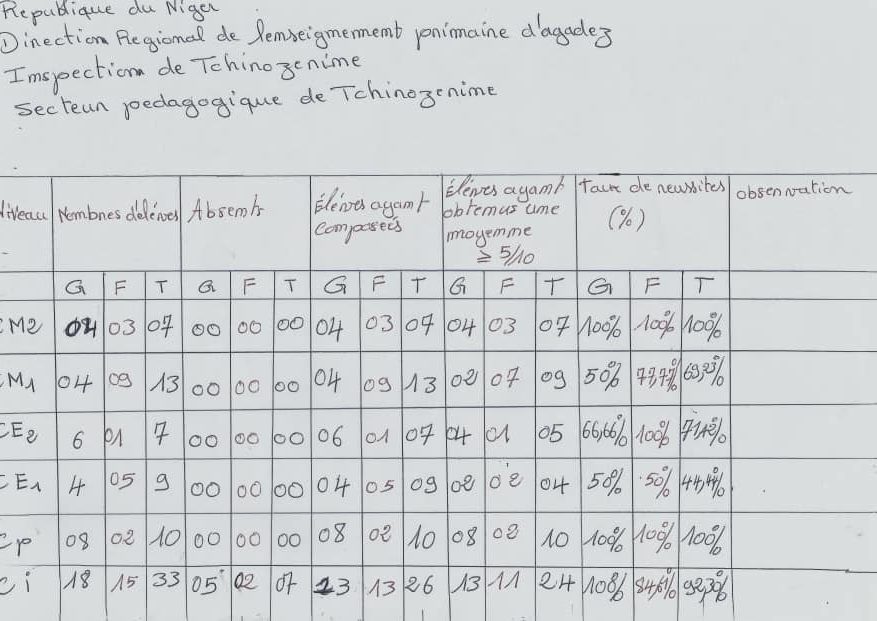 Republique du Niger
Direction Regional de lenseignement primaine d'agadez
Inspection de Tchinozenime
Secteur pedagogique de Tchinozenime
Niveau Nombres d'eléves Absents Élèves ayant composés Élèves ayant obtenus une moyenne ≥ 5/10 taux de reussites (%) observation
G F T G F T G F T G F T G F T
CM2 04 03 07 00 00 00 04 03 07 04 03 07 100% 100% 100%
CM1 04 09 13 00 00 00 04 09 13 02 07 09 50% 77,77% 69,23%
CE2 6 01 7 00 00 00 06 01 07 04 01 05 66,66% 100% 71,42%
CE1 4 05 9 00 00 00 04 05 09 02 02 04 50% 50% 44,44%
Cp 08 02 10 00 00 00 08 02 10 08 02 10 100% 100% 100%
Ci 18 15 33 05 02 07 13 13 26 13 11 24 100% 84,61% 92,30%